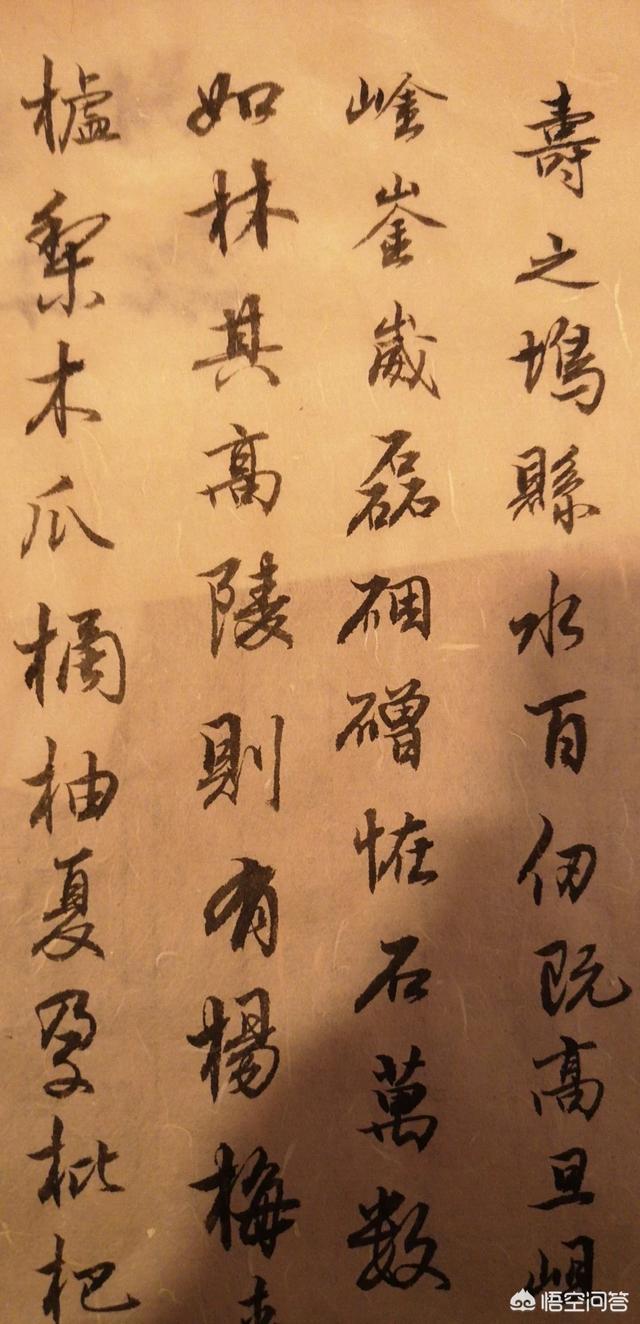 壽之塢縣水百仞既高且岨
崯崟崴磊硱磳恠石萬数
如林其高陵則有楊梅
樝梨木瓜橘柚夏孕枇杷
悟空问答